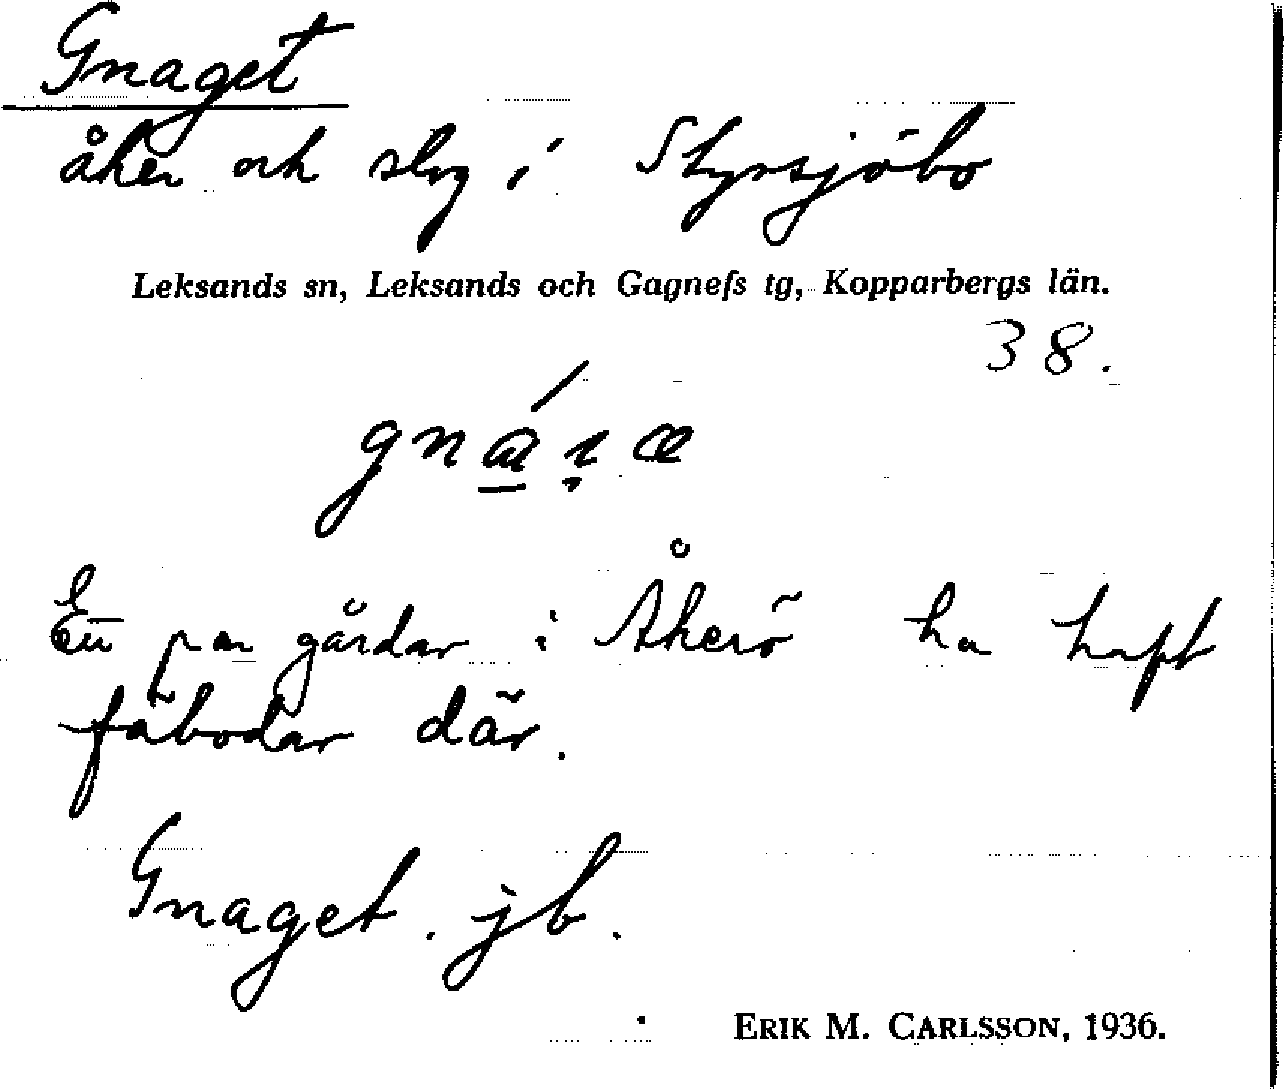 Gnaget
åker och slog i Styrsjöbo
Leksands sn, Leksands och Gagnefs tg, Kopparbergs län.
38.
Ett par gårdar i Åkerö ha haft
fäbodar där.
Gnaget. jb.
ERIK M. CARLSSON, 1936.